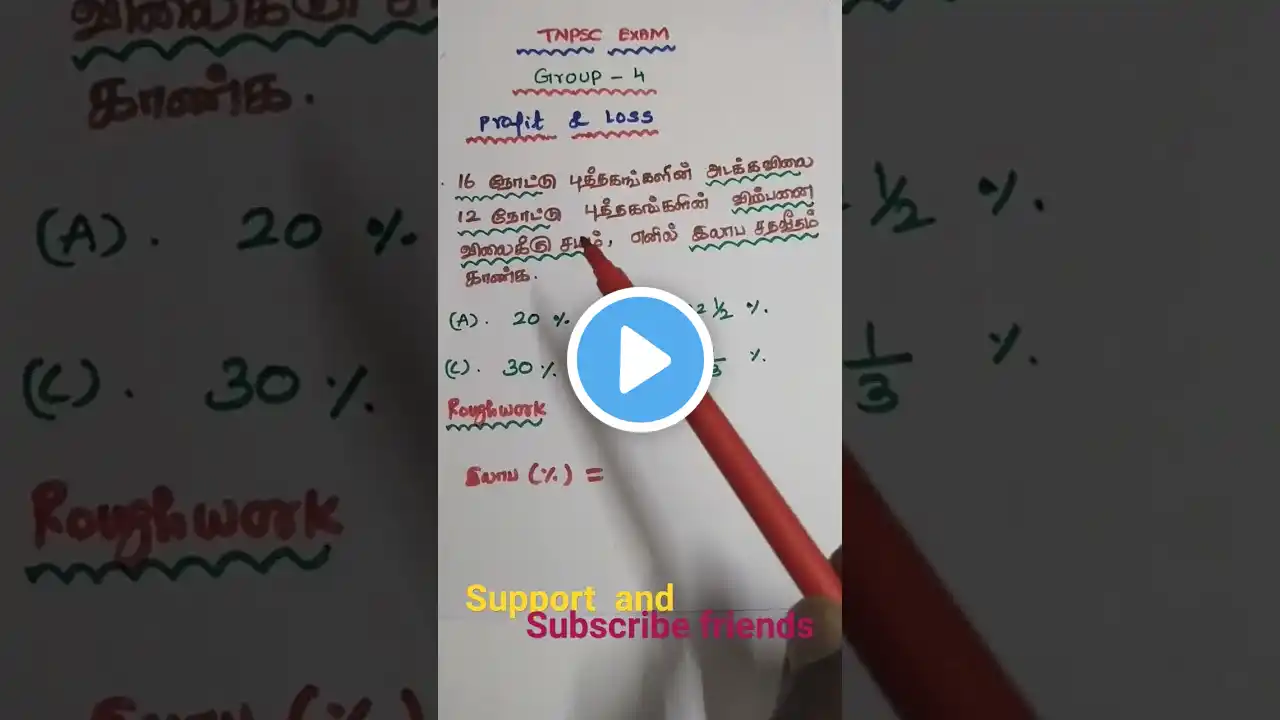 TNPSC EXAM
Group - 4
Profit & Loss
16 நோட்டு புத்தகங்களின் அடக்கவிலை
12 நோட்டு புத்தகங்களின் விற்பனை
விலைக்கு சமம், எனில் இலாப சதவீதம்
காண்க.
(A). 20 % 2 ½ %.
(C). 30 % 3 %.
Roughwork
இலாப (%) =
Support and
Subscribe friends